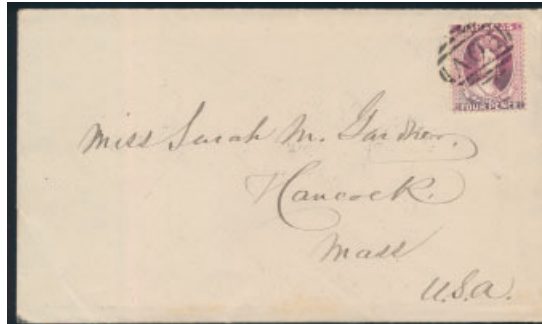 FOUR PENCE
Miss Sarah M. Gardner.
Hancock.
Mass
U.S.A.